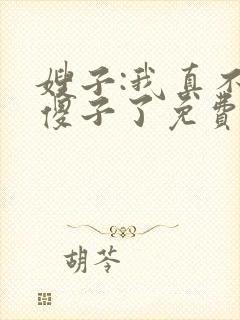 嫂子:我真不
傻子了免费
胡苓